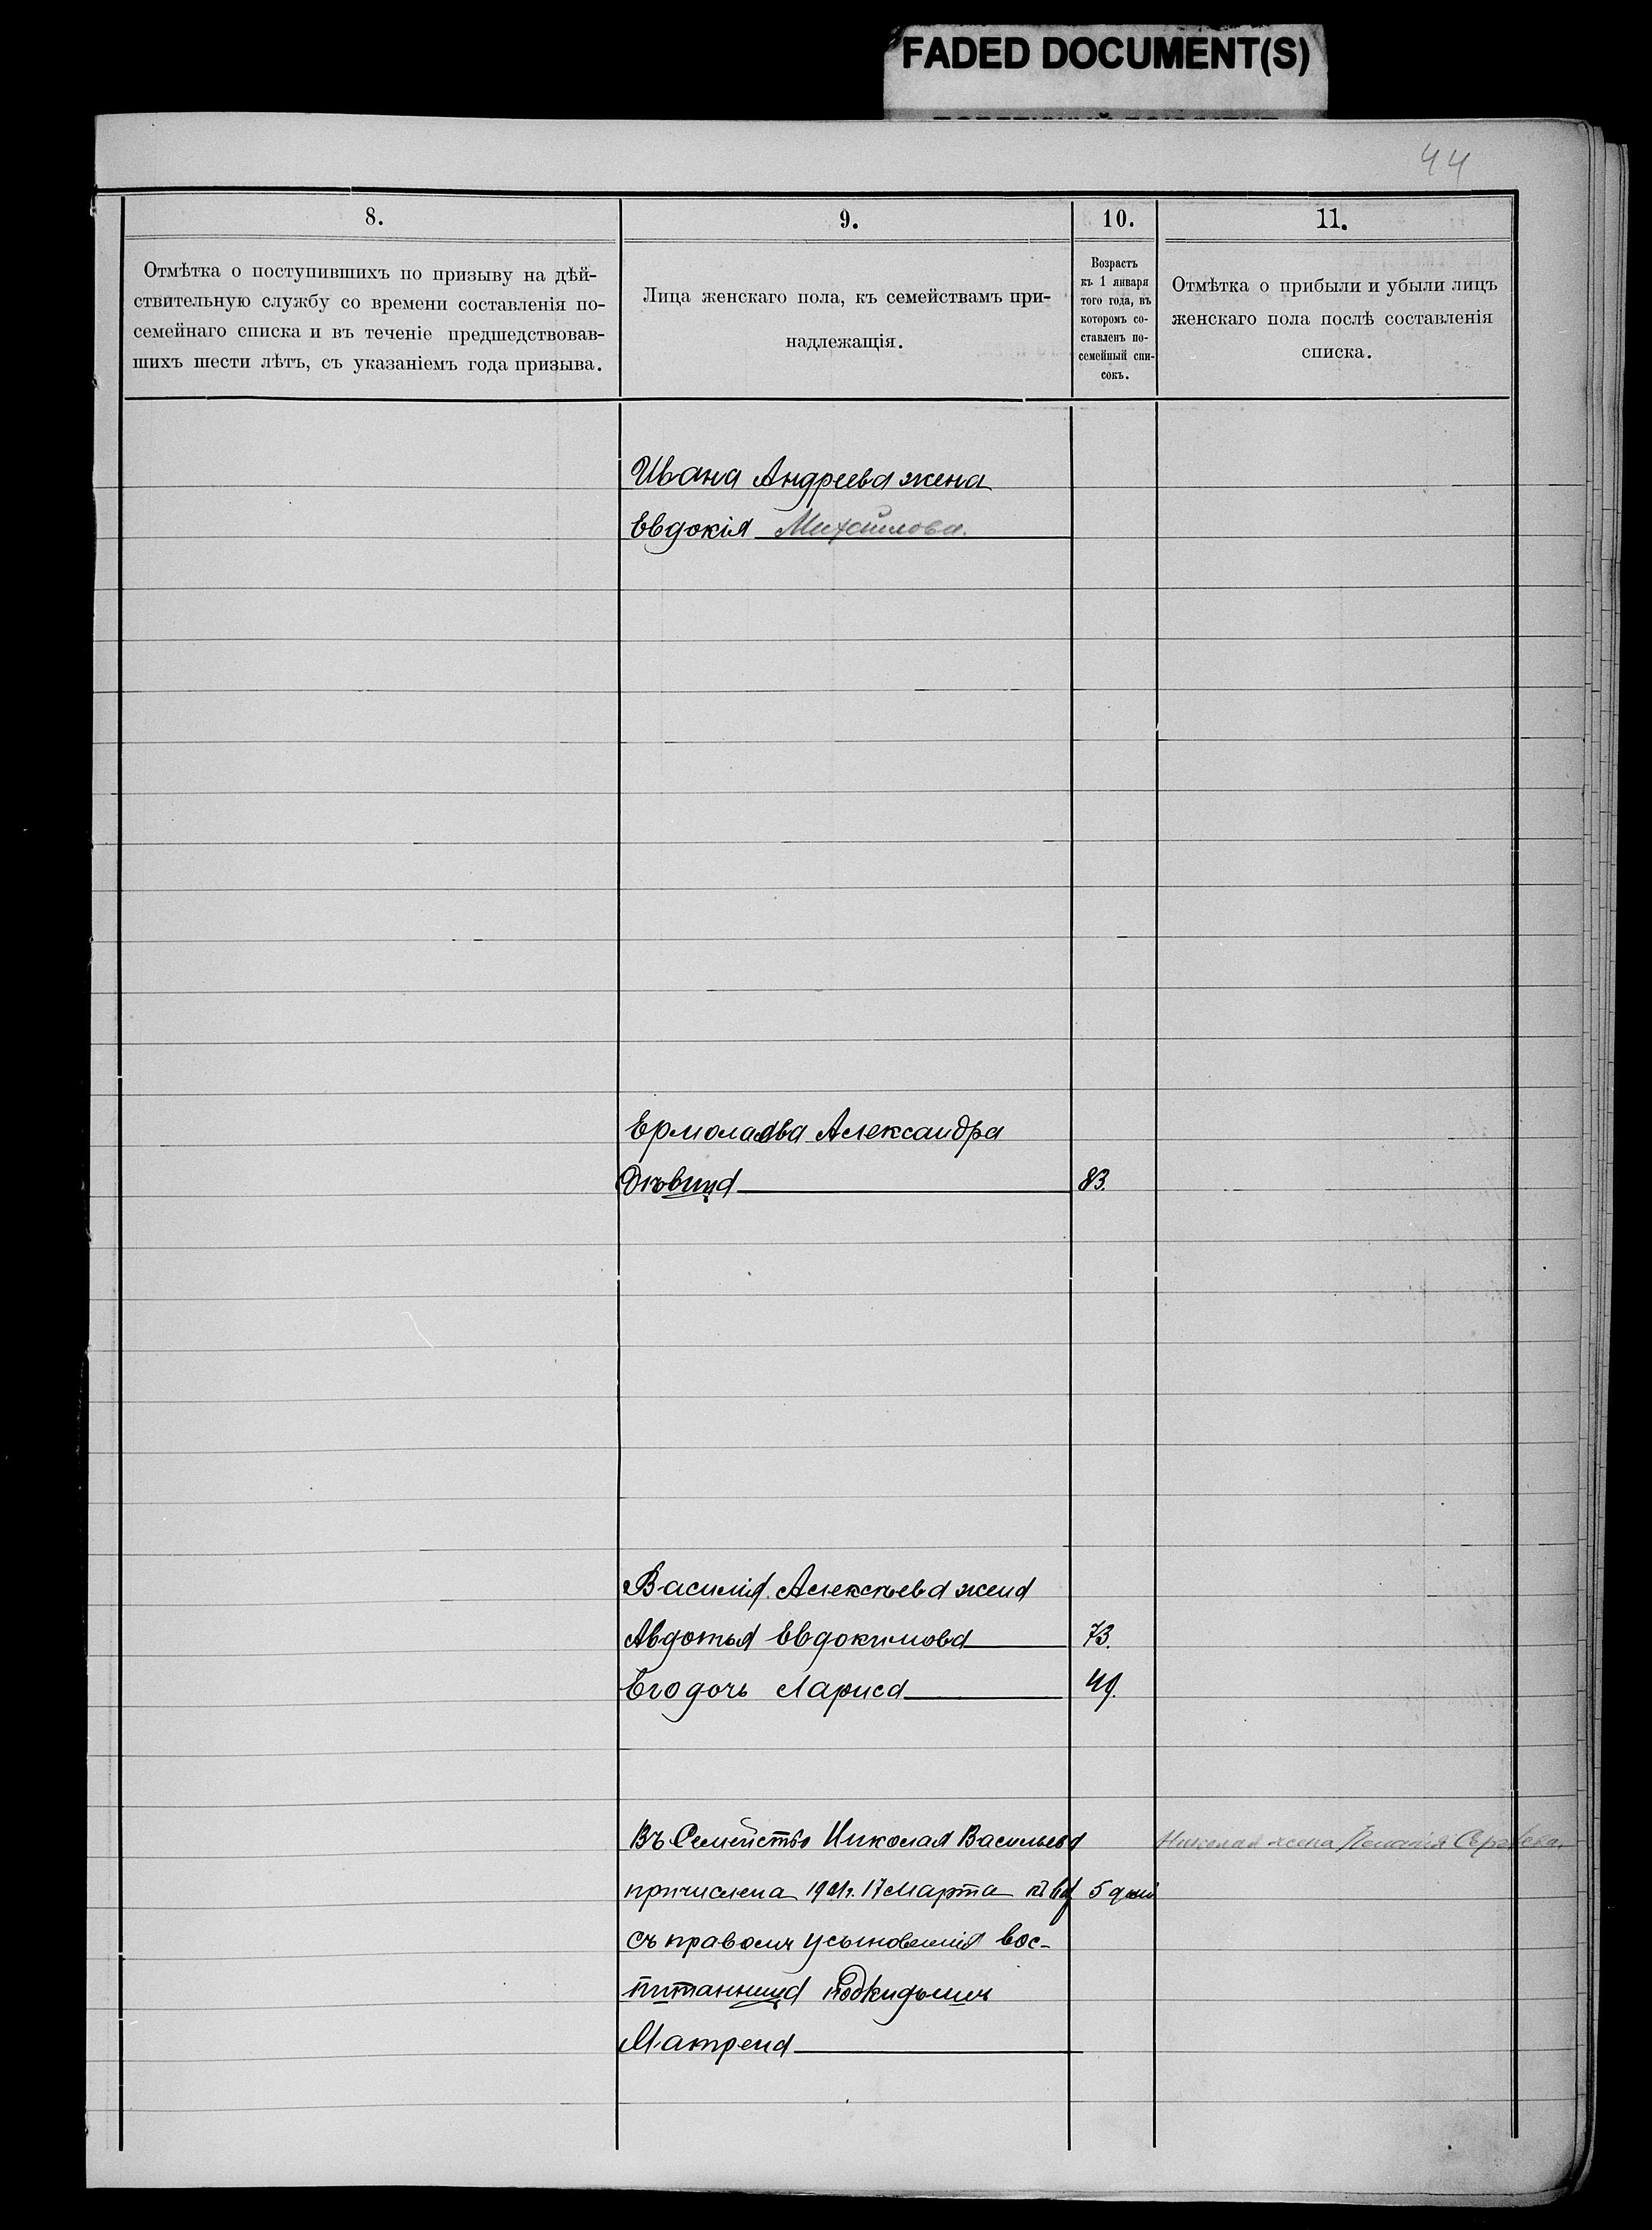 FADED DOCUMENT(S)
44
8.
9.
10.
11.
Отмѣтка о поступившихъ по призыву на дѣй-
ствительную службу со времени составленія по-
семейнаго списка и въ теченіе предшедствовав-
шихъ шести лѣтъ, съ указаніемъ года призыва.
Лица женскаго пола, къ семействамъ при-
надлежащія.
Возрастъ
къ 1 января
того года, въ
которомъ со-
ставленъ по-
семейный спи-
сокъ.
Отмѣтка о прибыли и убыли лицъ
женскаго пола послѣ составленія
списка.
Ивана Андреева жена
Евдокія Михайлова.
Ермолаева Александра
Дѣвица 83.
Василія Алексѣева жена
Авдотья Евдокимова 73.
Его дочь Лариса 49.
Въ Семейство Николая Васильева
Николая жена Пелагія Сергѣева.
причислена 17 Марта 5 дней
съ правомъ усыновленія вос-
питанница подкидышъ
Матрена